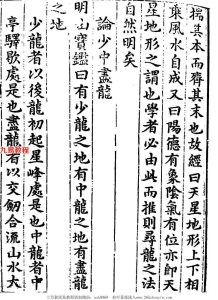 揣其本而齊其末也故經曰天星地形上下相
乘風水自成又曰陽德有象陰氣有位亦即天
星地形之謂也學者必由此而推則尋龍之法
自然明矣
論少中盡龍
明山寶鑑曰有少龍之地有中龍之地有盡龍
之地
少龍者以後龍初起星峰處是也中龍者中
亭驛歇處是也盡龍者以交劒合流山水大
九龍教程